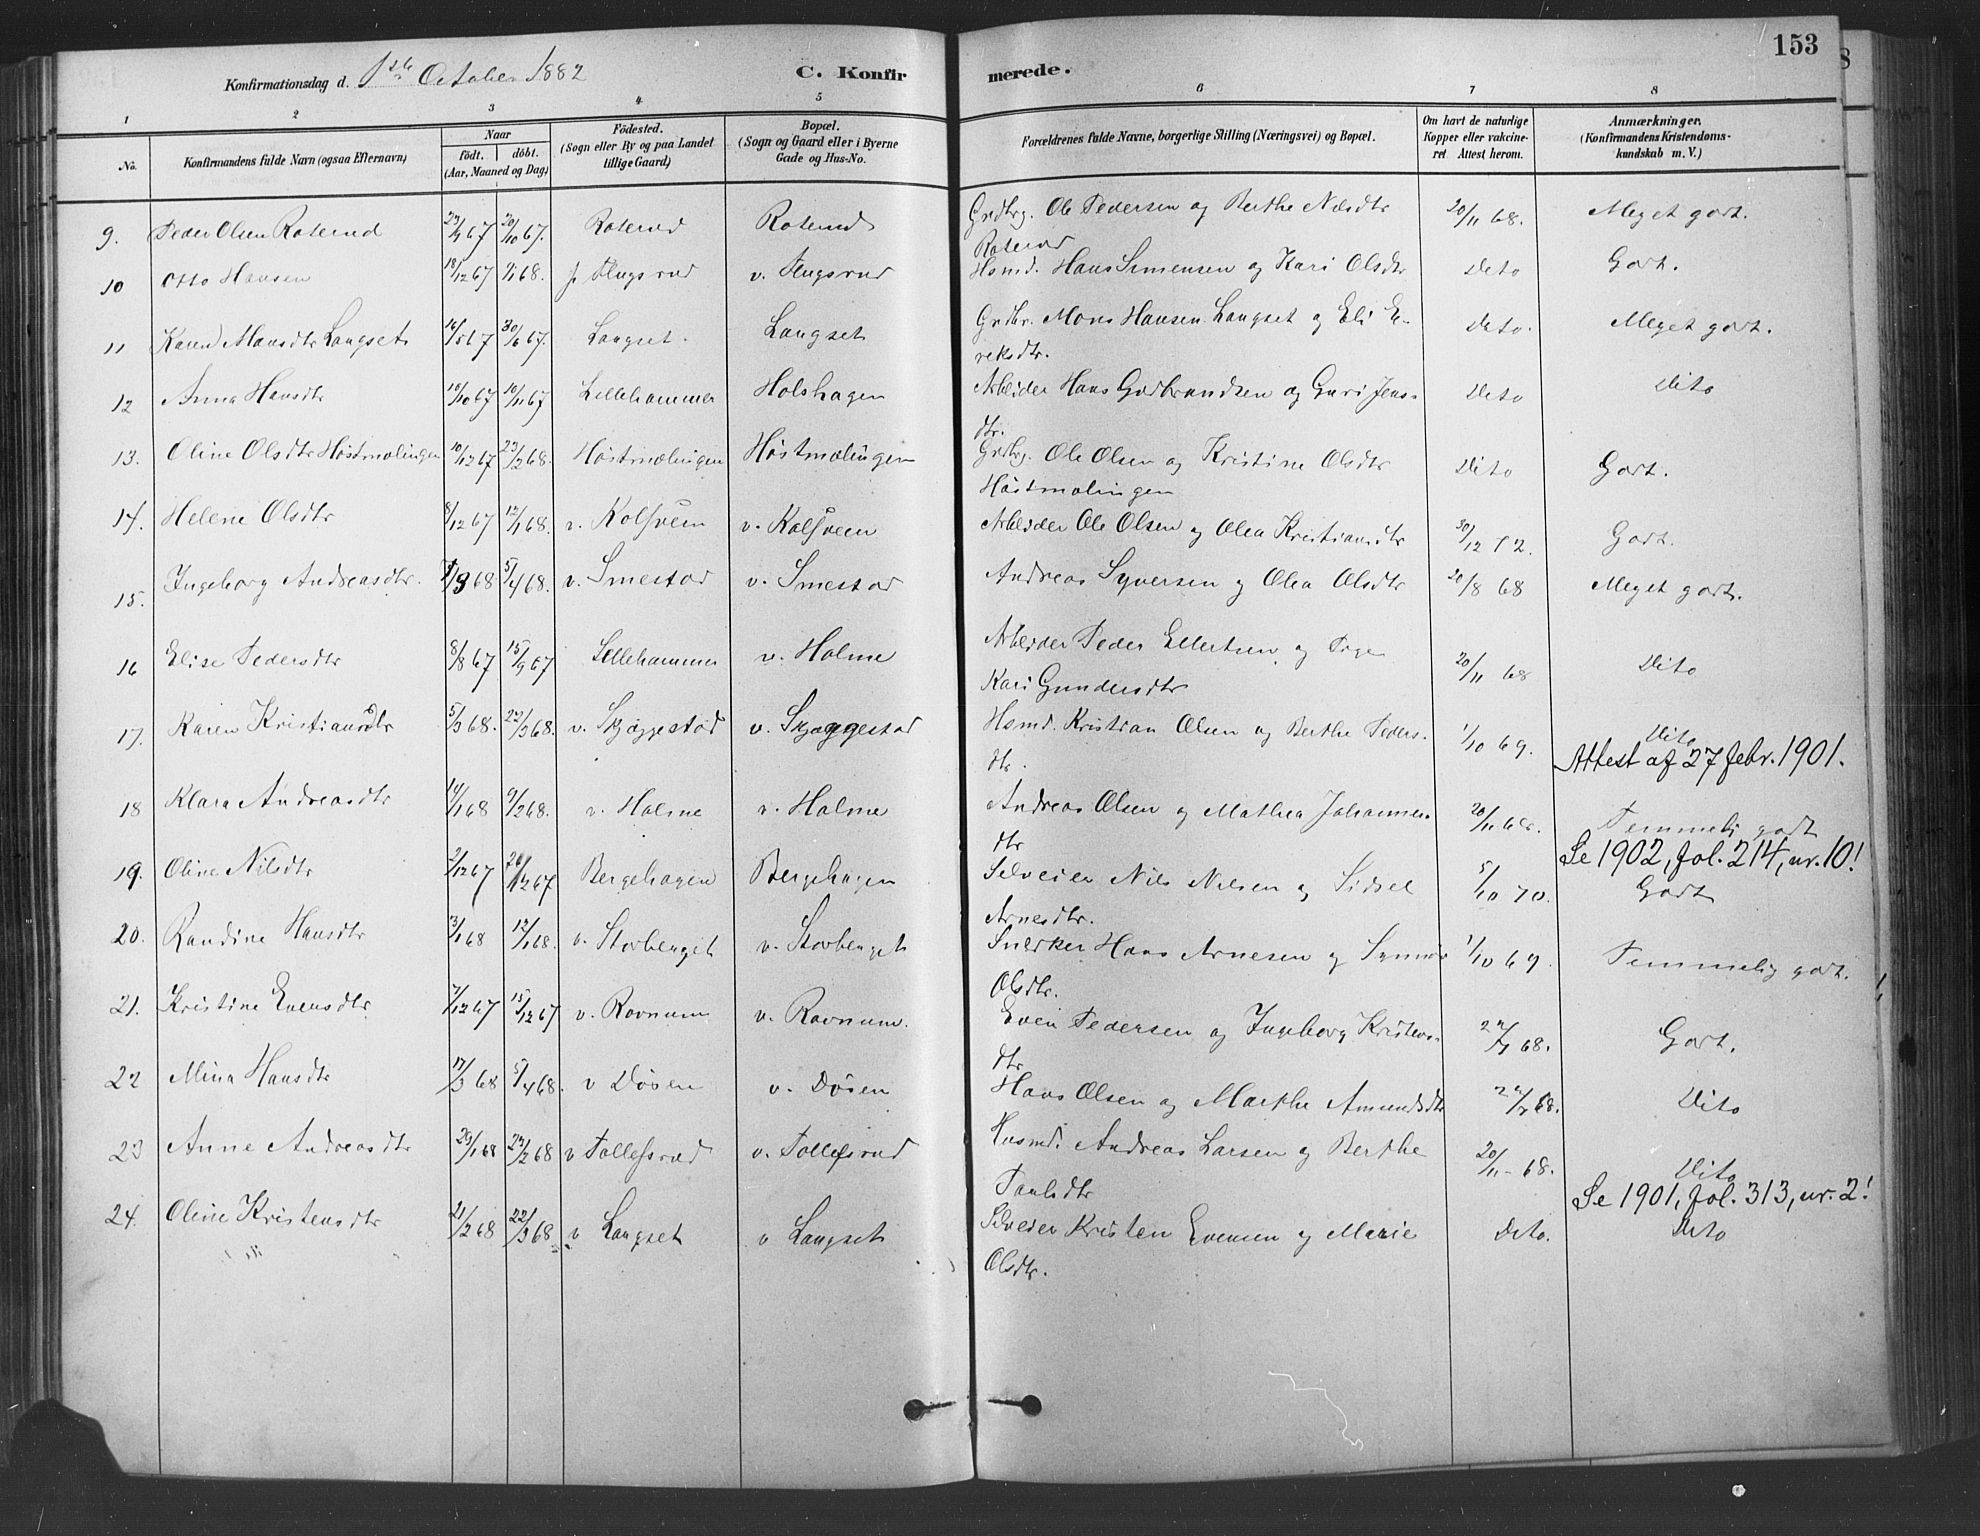 153
Konfirmationsdag d. 1ste October 1882
C. Konfirmerede.
1 2 3 4 5 6 7 8
No. Konfirmandens fulde Navn (ogsaa Efternavn) Naar födt. döbt. (Aar, Maaned og Dag) Födested. (Sogn eller By og paa Landet tillige Gaard) Bopæl. (Sogn og Gaard eller i Byerne Gade og Hus-No. Forældrenes fulde Navne, borgerlige Stilling (Næringsvei) og Bopæl. Om havt de naturlige Kopper eller vakcineret Attest herom. Anmærkninger. (Konfirmandens Kristendomskundskab m. V.)
9. Peder Olsen Roterud 20/10 67. Roterud Roterud Grdbrg. Ole Pedersen og Berthe Nilsdtr 20/11 68. Meget godt.
Roterud
10 Otto Hansen 18/12 67 1/1 68. Flugsrud v. Flugsrud Hsmd. Hans Simensen og Kari Olsdtr Dito Godt.
11 Karen Mansdtr Langset 16/5 67 30/6 67. Langset. Langset Grdbr. Mons Hansen Langset og Eli E- Dito. Meget godt.
reksdtr.
12 Anna Hansdtr 10/10 67 10/11 67 Lillehammer Holshagen Arbeider Hans Gudbrandsen og Guri Jens- Dito Dito
dtr.
13. Oline Olsdtr Höstmælingen 10/12 67 23/2 68. Höstmælingen Höstmælingen Grdbrg. Ole Olsen og Kristine Olsdtr Dito Godt.
Höstmælingen
14. Helene Olsdtr 8/12 67 12/1 68. v. Kolsveen v. Kolsveen Arbeider Ole Olsen og Olea Kristiansdtr 30/12 72. Godt.
15. Ingeborg Andreasdtr. /3 68 5/4 68. v. Smestad v. Smestad Andreas Syversen og Olea Olsdtr 20/8 68 Meget godt.
16 Elise Pedersdtr 8/8 67 15/9 67 Lillehammer v. Holme Arbeider Peder Ellertsen og Pige 20/11 68 Dito
Kari Gundersdtr
17. Karen Kristiansdtr 5/3 68. 22/3 68. v. Skjæggestad v. Skjæggestad Hsmd. Kristian Olsen og Berthe Peders- 1/10 69. Dito
dtr. Attest af 27 febr. 1901.
18 Klara Andreasdtr 14/1 68 9/2 68. v. Holme v. Holme Andreas Olsen og Mathea Johannes- 20/11 68. Temmelig godt
dtr Se 1902, fol. 214, nr. 10!
19. Oline Nilsdtr 2/12 67 26/12 67 Bergehagen Bergehagen Selveier Nils Nilsen og Sidsel 5/10 70. Godt
Arnesdtr.
20. Randine Hansdtr 3/1 68 12/1 68. v. Storberget v. Storberget Snerker Hans Arnesen og Synnøv 1/10 69. Temmelig godt.
Olsdtr.
21. Kristine Evensdtr 7/12 67 15/12 67 v. Rovnum v. Rovnum. Even Pedersen og Ingeborg Kristens- 68. Godt.
dtr.
22 Mina Hansdtr 17/3 68 5/4 68. v Døsen v. Døsen Hans Olsen og Marthe Amundsdtr 68. Dito
23 Anne Andreasdtr 29/1 68 23/2 68 v Tollefsrud v. Tollefsrud Husmd. Andreas Larsen og Berthe 20/11 - 68. Dito
Paulsdtr Se 1901, fol. 313, nr. 2!
24. Oline Kristensdtr 21/2 68 22/3 68 v Langset v Langset Selveier Kristen Evensen og Marie Dito. Dito
Olsdtr.